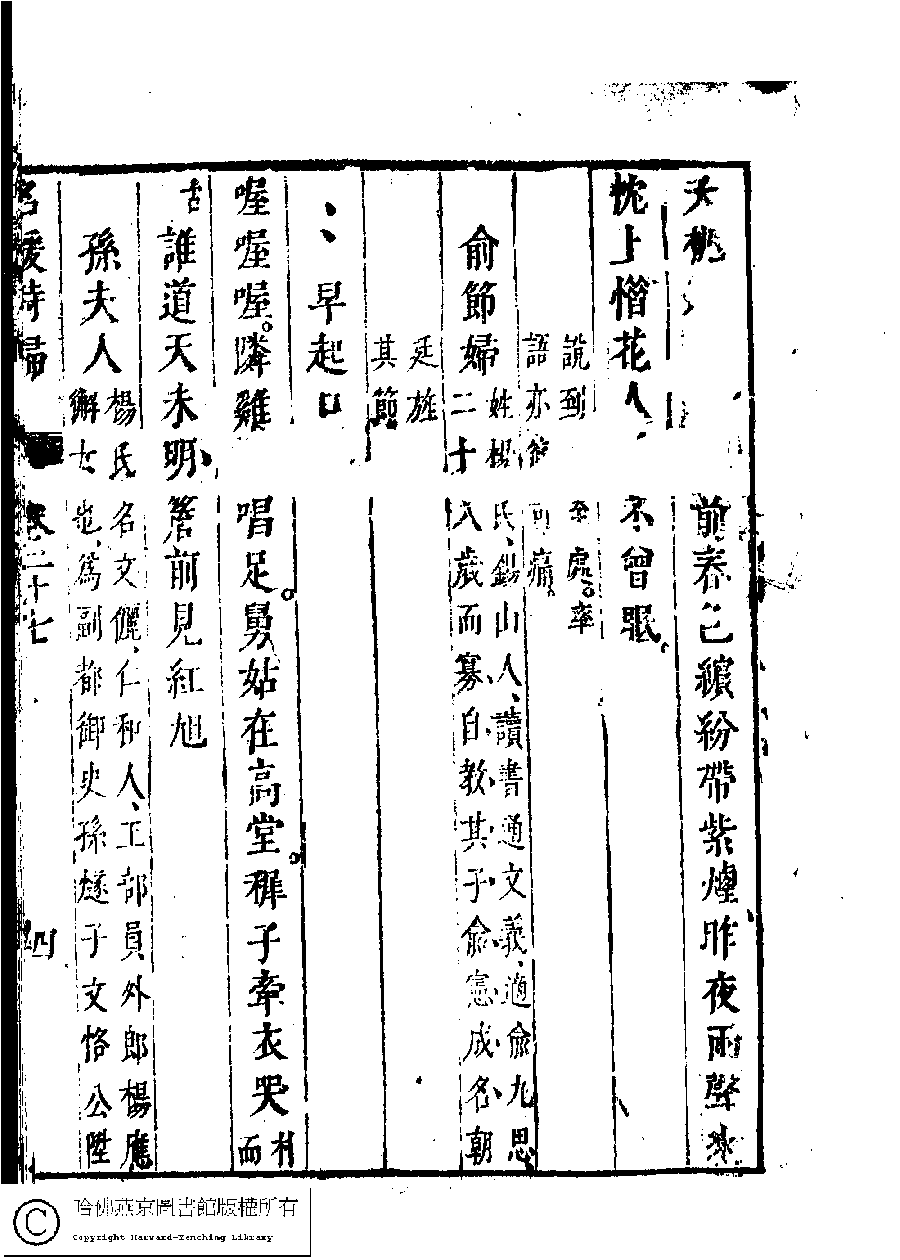 夭桃
前春色繽紛帶紫煙昨夜雨聲來
枕上憎花人不曾眠
說到至處牽
語亦
可痛
俞節婦二十姓楊氏錫山人讀書通文義適俞九思
八歲而寡自教其子俞憲成名朝
廷旌
其節
早起口
喔喔喔隣雞唱足舅姑在高堂穉子牽衣哭朴
而
古誰道天未明簷前見紅旭
孫夫人楊氏名文儷仁和人工部員外郎楊應
獬女也為副都御史孫燧子文恪公陞
名媛詩歸
卷二十七
四
哈佛燕京圖書館版權所有
Copyright Harvard-Yenching Library